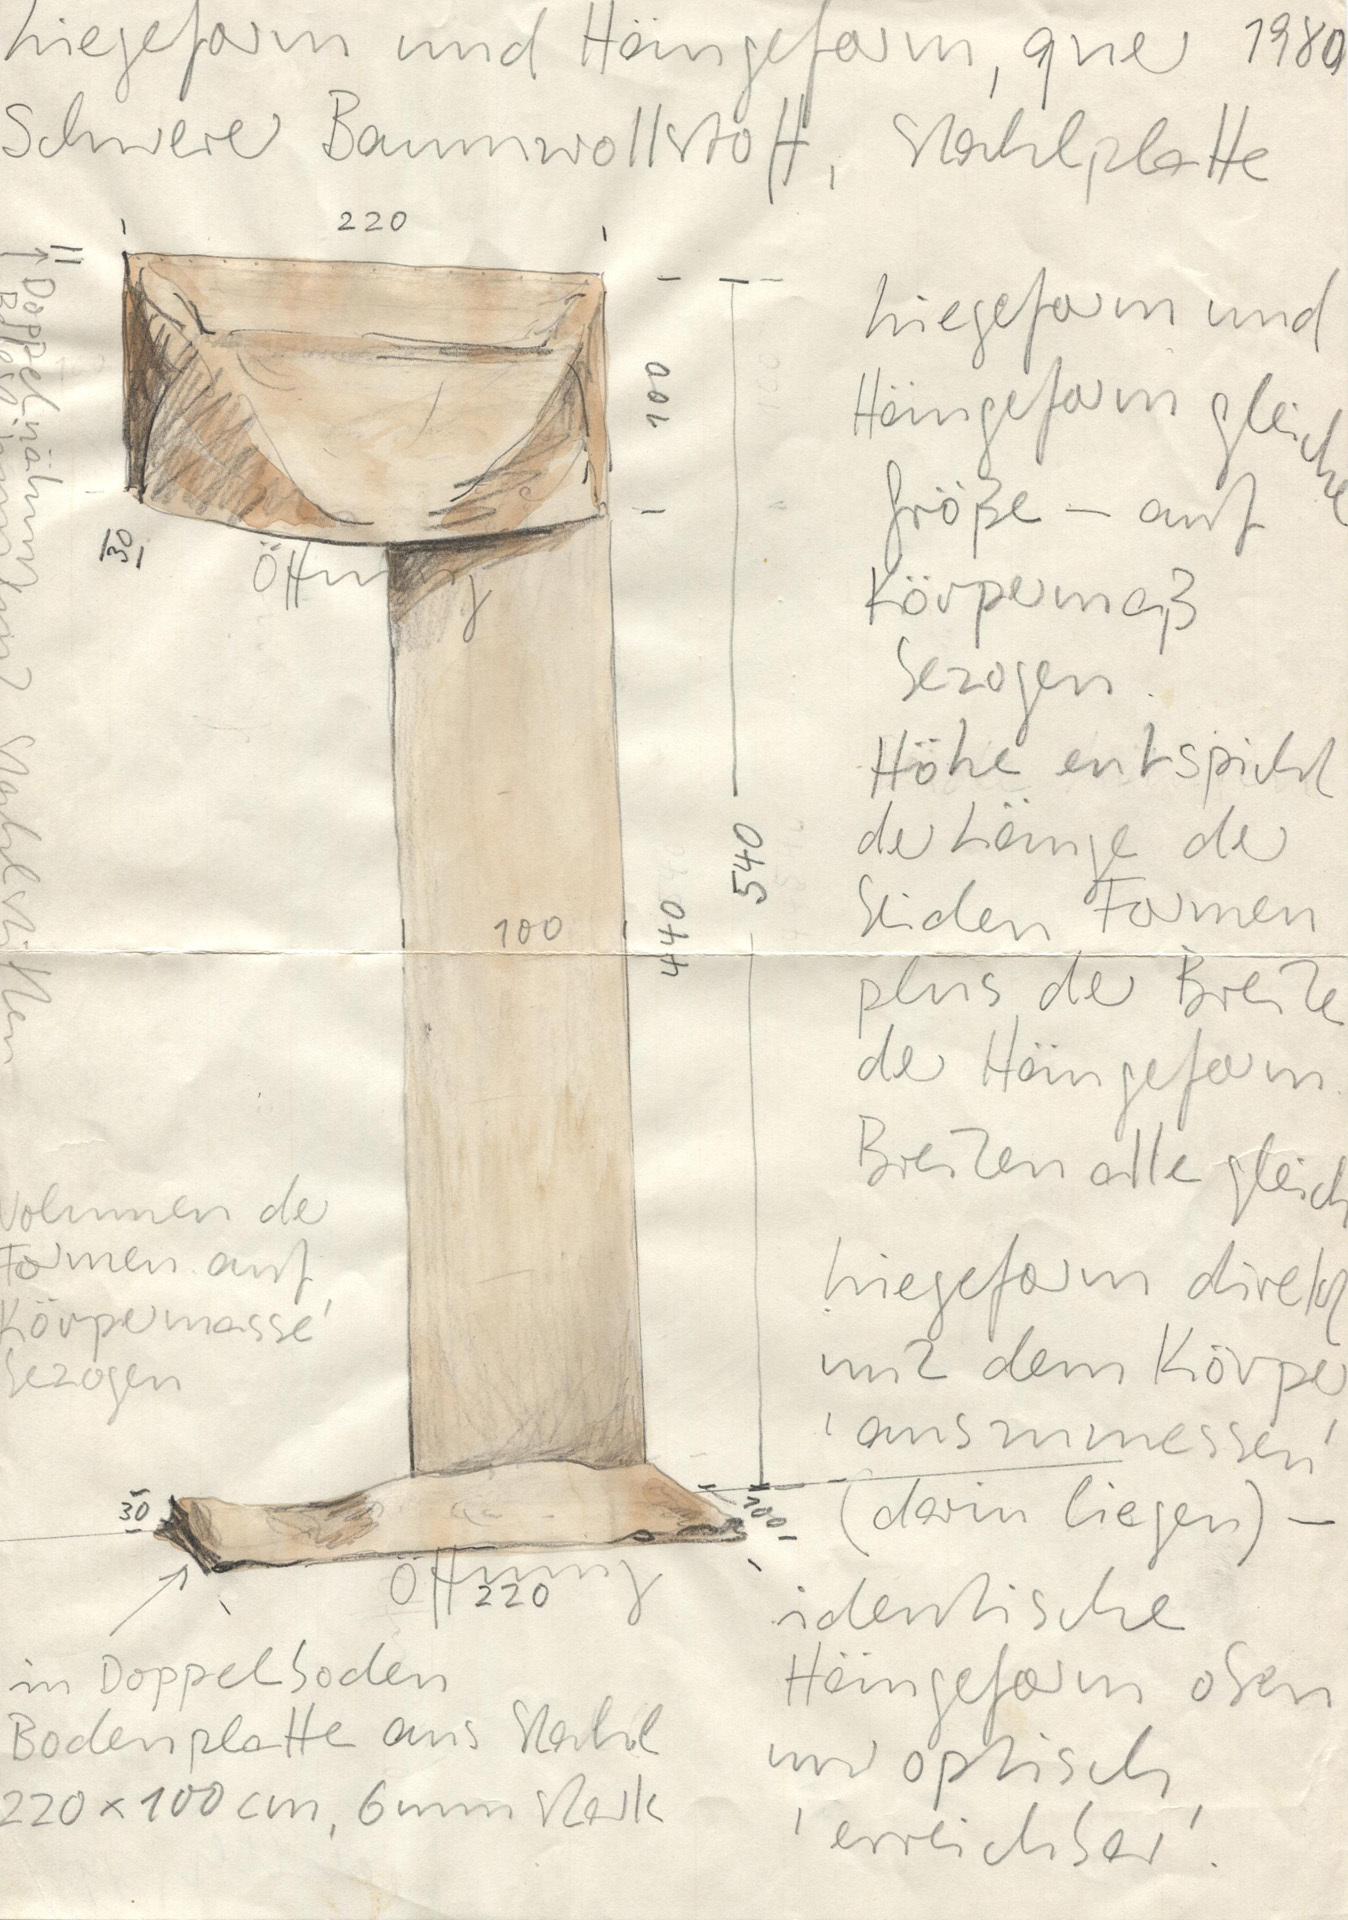 Liegeform und Hängeform, quer 1980
Schwerer Baumwollstoff, Stahlplatte
220
Doppelnähung
100
30
Öffnung
540
440
100
Liegeform und
Hängeform gleiche
Größe — auf
Körpermaß
bezogen.
Höhe entspicht
der Länge der
beiden Formen
plus der Breite
der Hängeform.
Breiten alle gleich
Volumen der
Formen auf
'Körpermasse'
bezogen
Liegeform direkt
mit dem Körper
'auszumessen'
(darin liegen) —
identische
Hängeform oben
nur optisch
'erreichbar'.
30
100
Öffnung
220
in Doppelboden
Bodenplatte aus Stahl
220 x 100 cm, 6mm stark